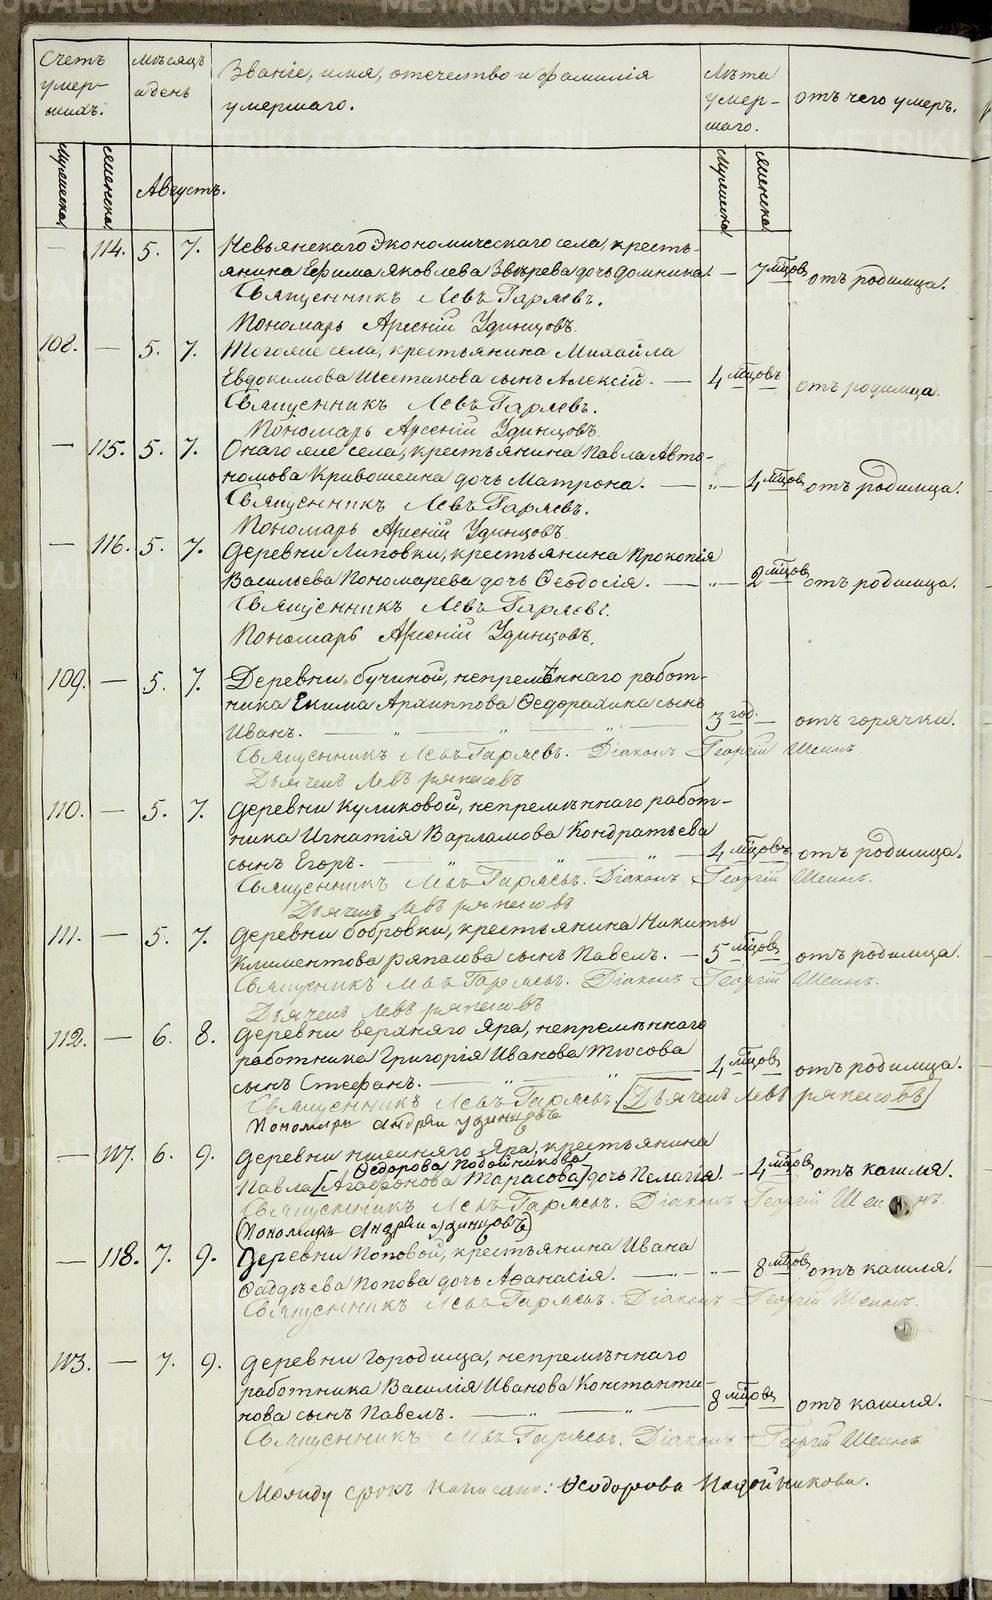 Счетъ умер-шихъ.
Мѣсяцъ и день
Званіе, имя, отечество и фамилія умершаго.
Лѣта умер-шаго.
отъ чего умеръ.
Мужеска
Женска
Августъ.
Мужеска
Женска
— 114. 5. 7. Невьянскаго Экономическаго села, кресть-
янина Ефима Яковлева Звѣрева дочь Домника. — 7 мцовъ отъ родимца.
Священникъ Левъ Гаряевъ.
Пономарь Арсеній Удинцовъ.
108. — 5. 7. Тогоже села, крестьянина Михайла
Евдокимова Шестакова сынъ Алексій. — 4 мцовъ отъ родимца.
Священникъ Левъ Гаряевъ.
Пономарь Арсеній Удинцовъ.
— 115. 5. 7. Онаго же села, крестьянина Павла Авто-
номова Кривошеина дочь Матрона. — „ — 4 мцовъ отъ родимца.
Священникъ Левъ Гаряевъ.
Пономарь Арсеній Удинцовъ.
— 116. 5. 7. Деревни Липовки, крестьянина Прокопія
Васильева Пономарева дочь Ѳеодосія. — „ — 2 мцовъ отъ родимца.
Священникъ Левъ Гаряевъ.
Пономарь Арсеній Удинцовъ.
109. — 5. 7. Деревни Бучиной, непремѣннаго работ-
ника Екима Архиппова Ѳедорахина сынъ
Иванъ. — „ — „ — 3 год. — отъ горячки.
Священникъ Левъ Гаряевъ. Діаконъ Георгій Шеинъ.
Дьячекъ Левъ Ряпасовъ
110. — 5. 7. Деревни Куликовой, непремѣннаго работ-
ника Игнатія Варламова Кондратьева
сынъ Егоръ. — „ — „ — 4 мцовъ отъ родимца.
Священникъ Левъ Гаряевъ. Діаконъ Георгій Шеинъ.
Дьячекъ Левъ Ряпасовъ
111. — 5. 7. Деревни Бобровки, крестьянина Никиты
Климентова Ряпасова сынъ Павелъ. — 5 мцовъ отъ родимца.
Священникъ Левъ Гаряевъ. Діаконъ Георгій Шеинъ.
Дьячекъ Левъ Ряпасовъ
112. — 6. 8. Деревни Верхняго Яра, непремѣннаго
работника Григорія Иванова Тюсова
сынъ Стефанъ. — „ — „ — 4 мцовъ отъ родимца.
Священникъ Левъ Гаряевъ. [Дьячекъ Левъ Ряпасовъ]
Пономарь Андрей Удинцовъ
— 117. 6. 9. Деревни Нижняго Яра, крестьянина
Ѳедорова Подойникова
Павла [Агафонова Тарасова] дочь Пелагія. — 4 мцовъ отъ кашля.
Священникъ Левъ Гаряевъ. Діаконъ Георгій Шеинъ
(Пономарь Андрей Удинцовъ)
— 118. 7. 9. Деревни Поповой, крестьянина Ивана
Фаддѣева Попова дочь Аѳанасія. — „ — 8 мцовъ отъ кашля.
Священникъ Левъ Гаряевъ. Діаконъ Георгій Шеинъ.
113. — 7. 9. Деревни Городища, непремѣннаго
работника Василія Иванова Константи-
нова сынъ Павелъ. — „ — „ — 8 мцовъ отъ кашля.
Священникъ Левъ Гаряевъ. Діаконъ Георгій Шеинъ
Между срокъ написано: Ѳеодорова Подойникова.
METRIKI.GASU-URAL.RU